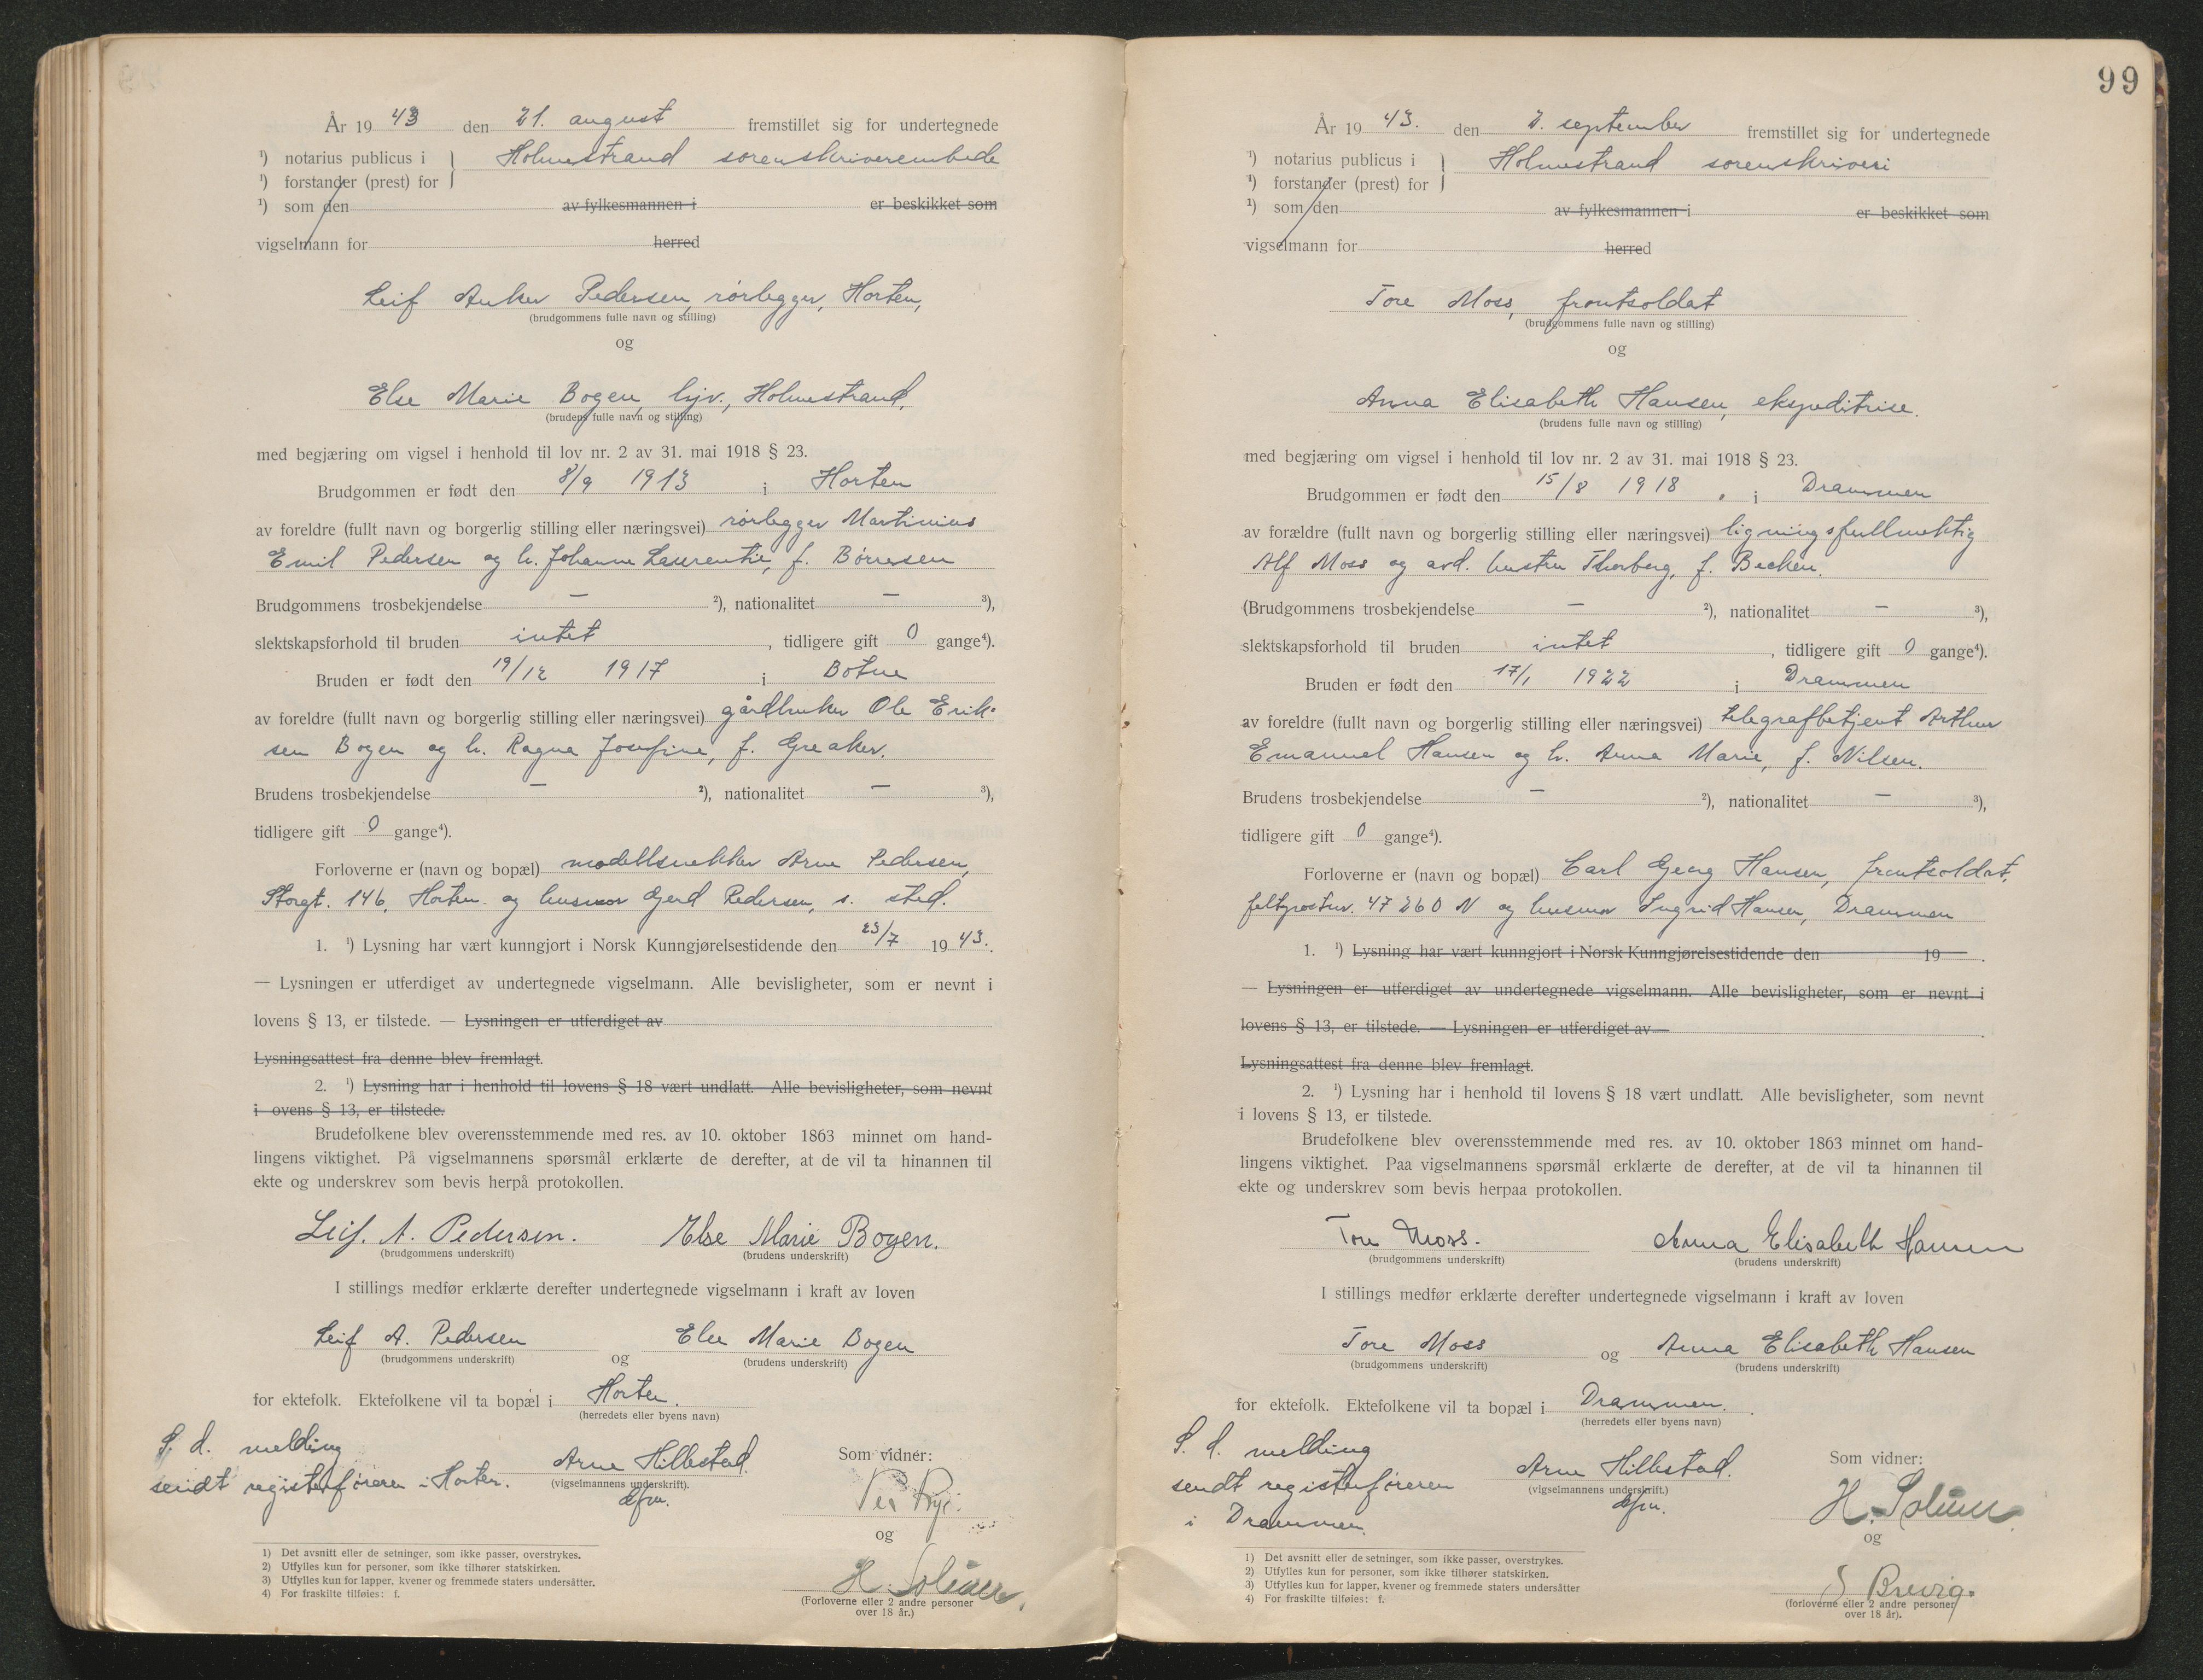 År 19 43 den 21. august fremstillet sig for undertegnede
¹) notarius publicus i } Holmestrand sorenskriverembede
¹) forstander (prest) for
¹) som den av fylkesmannen i er beskikket som
vigselmann for herred
Leif Anker Pedersen, rørlegger, Horten,
(brudgommens fulle navn og stilling)
og
Else Marie Bogen, hjv., Holmestrand.
(brudens fulle navn og stilling)
med begjæring om vigsel i henhold til lov nr. 2 av 31. mai 1918 § 23.
Brudgommen er født den 8/9 1913 i Horten
av foreldre (fullt navn og borgerlig stilling eller næringsvei) rørlegger Martinius
Emil Pedersen og h. Johanne Laurentie, f. Børresen
Brudgommens trosbekjendelse — ²), nationalitet — ³),
slektskapsforhold til bruden intet, tidligere gift 0 gange⁴).
Bruden er født den 19/12 1917 i Botne
av foreldre (fullt navn og borgerlig stilling eller næringsvei) gårdbruker Ole Erik-
sen Bogen og h. Ragna Josefine, f. Greaker.
Brudens trosbekjendelse — ²), nationalitet — ³),
tidligere gift 0 gange⁴).
Forloverne er (navn og bopæl) modellsnekker Arne Pedersen,
Storgt. 146, Horten og husmor Gerd Pedersen, s. sted.
1. ¹) Lysning har vært kunngjort i Norsk Kunngjørelsestidende den 23/7 19 43.
— Lysningen er utferdiget av undertegnede vigselmann. Alle bevisligheter, som er nevnt i
lovens § 13, er tilstede. — Lysningen er utferdiget av
Lysningsattest fra denne blev fremlagt.
2. ¹) Lysning har i henhold til lovens § 18 vært undlatt. Alle bevisligheter, som nevnt
i ovens § 13, er tilstede.
Brudefolkene blev overensstemmende med res. av 10. oktober 1863 minnet om hand-
lingens viktighet. På vigselmannens spørsmål erklærte de derefter, at de vil ta hinannen til
ekte og underskrev som bevis herpå protokollen.
Leif. A. Pedersen. Else Marie Bogen.
(brudgommens underskrift) (brudens underskrift)
I stillings medfør erklærte derefter undertegnede vigselmann i kraft av loven
Leif A. Pedersen og Else Marie Bogen
(brudgommens underskrift) (brudens underskrift)
for ektefolk. Ektefolkene vil ta bopæl i Horten.
(herredets eller byens navn)
S. d. melding
sendt registerføreren i Horten.
Arne Hillestad.
(vigselmannens underskrift).
dfm.
Som vidner:
Per Rye.
og
H. Solum.
(Forloverne eller 2 andre personer
over 18 år.)
1) Det avsnitt eller de setninger, som ikke passer, overstrykes.
2) Utfylles kun for personer, som ikke tilhører statskirken.
3) Utfylles kun for lapper, kvener og fremmede staters undersåtter.
4) For fraskilte tilføies: f.
99
År 19 43. den 2. september fremstillet sig for undertegnede
¹) notarius publicus i } Holmestrand sorenskriveri
¹) forstander (prest) for
¹) som den av fylkesmannen i er beskikket som
vigselmann for herred
Tore Moss, frontsoldat
(brudgommens fulle navn og stilling)
og
Anna Elisabeth Hansen, ekspeditrise.
(brudens fulle navn og stilling)
med begjæring om vigsel i henhold til lov nr. 2 av 31. mai 1918 § 23.
Brudgommen er født den 15/8 1918. i Drammen
av forældre (fullt navn og borgerlig stilling eller næringsvei) ligningsfullmektig
Alf Moss og avd. hustru Thorberg, f. Becken.
(Brudgommens trosbekjendelse — ²), nationalitet — ³),
slektskapsforhold til bruden intet, tidligere gift 0 gange⁴).
Bruden er født den 17/1 1922 i Drammen
av foreldre (fullt navn og borgerlig stilling eller næringsvei) telegrafbetjent Arthur
Emanuel Hansen og h. Anna Marie, f. Nilsen.
Brudens trosbekjendelse — ²), nationalitet — ³),
tidligere gift 0 gange⁴).
Forloverne er (navn og bopæl) Carl Georg Hansen, frontsoldat,
feltpostnr. 47260 N og husmor Ingrid Hansen, Drammen
1. ¹) Lysning har vært kunngjort i Norsk Kunngjørelsestidende den 19 .
— Lysningen er utferdiget av undertegnede vigselmann. Alle bevisligheter, som er nevnt i
lovens § 13, er tilstede. — Lysningen er utferdiget av
Lysningsattest fra denne blev fremlagt.
2. ¹) Lysning har i henhold til lovens § 18 vært undlatt. Alle bevisligheter, som nevnt
i lovens § 13, er tilstede.
Brudefolkene blev overensstemmende med res. av 10. oktober 1863 minnet om hand-
lingens viktighet. Paa vigselmannens spørsmål erklærte de derefter, at de vil ta hinannen til
ekte og underskrev som bevis herpaa protokollen.
Tore Moss. Anna Elisabeth Hansen
(brudgommens underskrift) (brudens underskrift)
I stillings medfør erklærte derefter undertegnede vigselmann i kraft av loven
Tore Moss og Anna Elisabeth Hansen
(brudgommens underskrift) (brudens underskrift)
for ektefolk. Ektefolkene vil ta bopæl i Drammen.
(herredets eller byens navn)
S. d. melding
sendt registerføreren
i Drammen.
Arne Hillestad.
(vigselmannens underskrift.)
dfm.
Som vidner:
H. Solum.
og
S Brevig.
(forloverne eller 2 andre personer
over 18 år).
1) Det avsnitt eller de setninger, som ikke passer, overstrykes.
2) Utfylles kun for personer, som ikke tilhører statskirken.
3) Utfylles kun for lapper, kvener og fremmede staters undersåtter
4) For fraskilte tilføies: f.